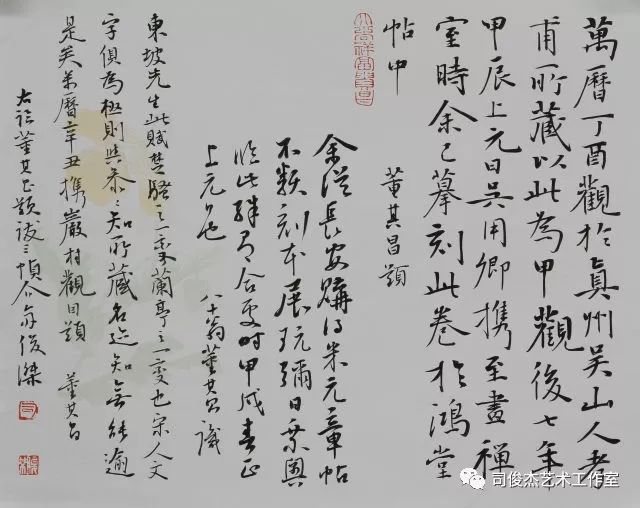 萬曆丁酉觀於真州吳山人孝
甫所藏以此為甲觀後七年
甲辰上元日吳用卿攜至畫禪
室時余已摹刻此卷於鴻堂
帖中
董其昌題
余從長安購得米元章帖
不類刻本展玩彌日乘興
臨此殊有合處時甲戌春正
上元日也
八十翁董其昌識
東坡先生此賦楚騷之一變蘭亭之一變也宋人文
字俱為極則與參參知所藏名跡知無能逾
是矣萬曆辛丑攜嚴村觀因題 董其昌
右臨董其昌題跋三幀 俊傑
司俊杰艺术工作室